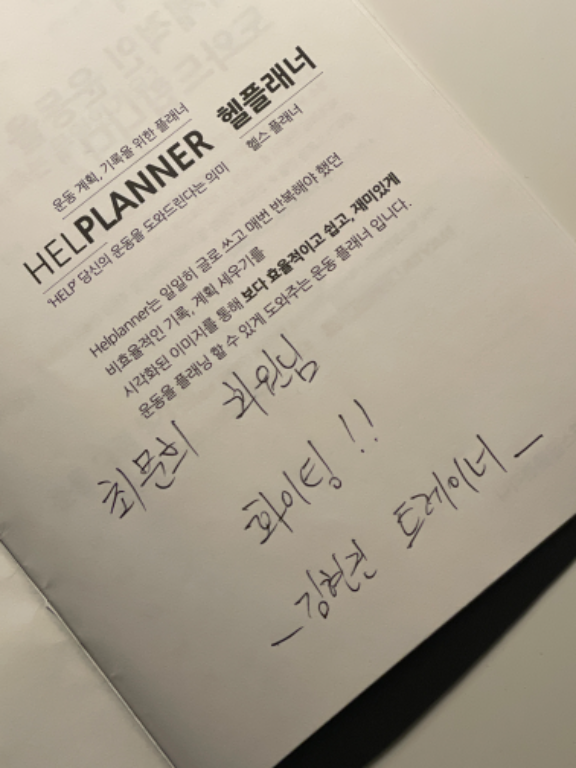 운동 계획, 기록을 위한 플래너
HELPLANNER 헬플래너
'HELP' 당신의 운동을 도와드린다는 의미 헬스 플래너
Helplanner는 일일히 글로 쓰고 매번 반복해야 했던
비효율적인 기록, 계획 세우기를
시각화된 이미지를 통해 보다 효율적이고 쉽고, 재미있게
운동을 플래닝 할 수 있게 도와주는 운동 플래너 입니다.
최문희 회원님
화이팅!!
- 김현진 트레이너 -